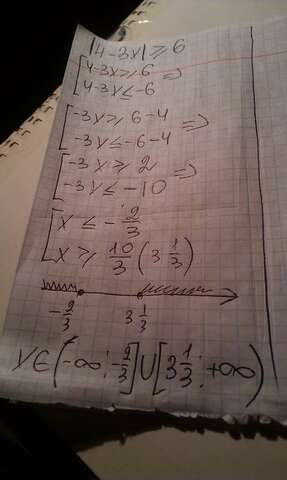 |4-3x|⩾6
[4-3x⩾6 =>
[4-3x≤-6
[-3x⩾6-4 =>
[-3x≤-6-4
[-3x⩾2 =>
[-3x≤-10
[x≤-2/3
[x⩾10/3 (3 1/3)
-2/3 3 1/3
x∈(-∞;-2/3]∪[3 1/3;+∞)